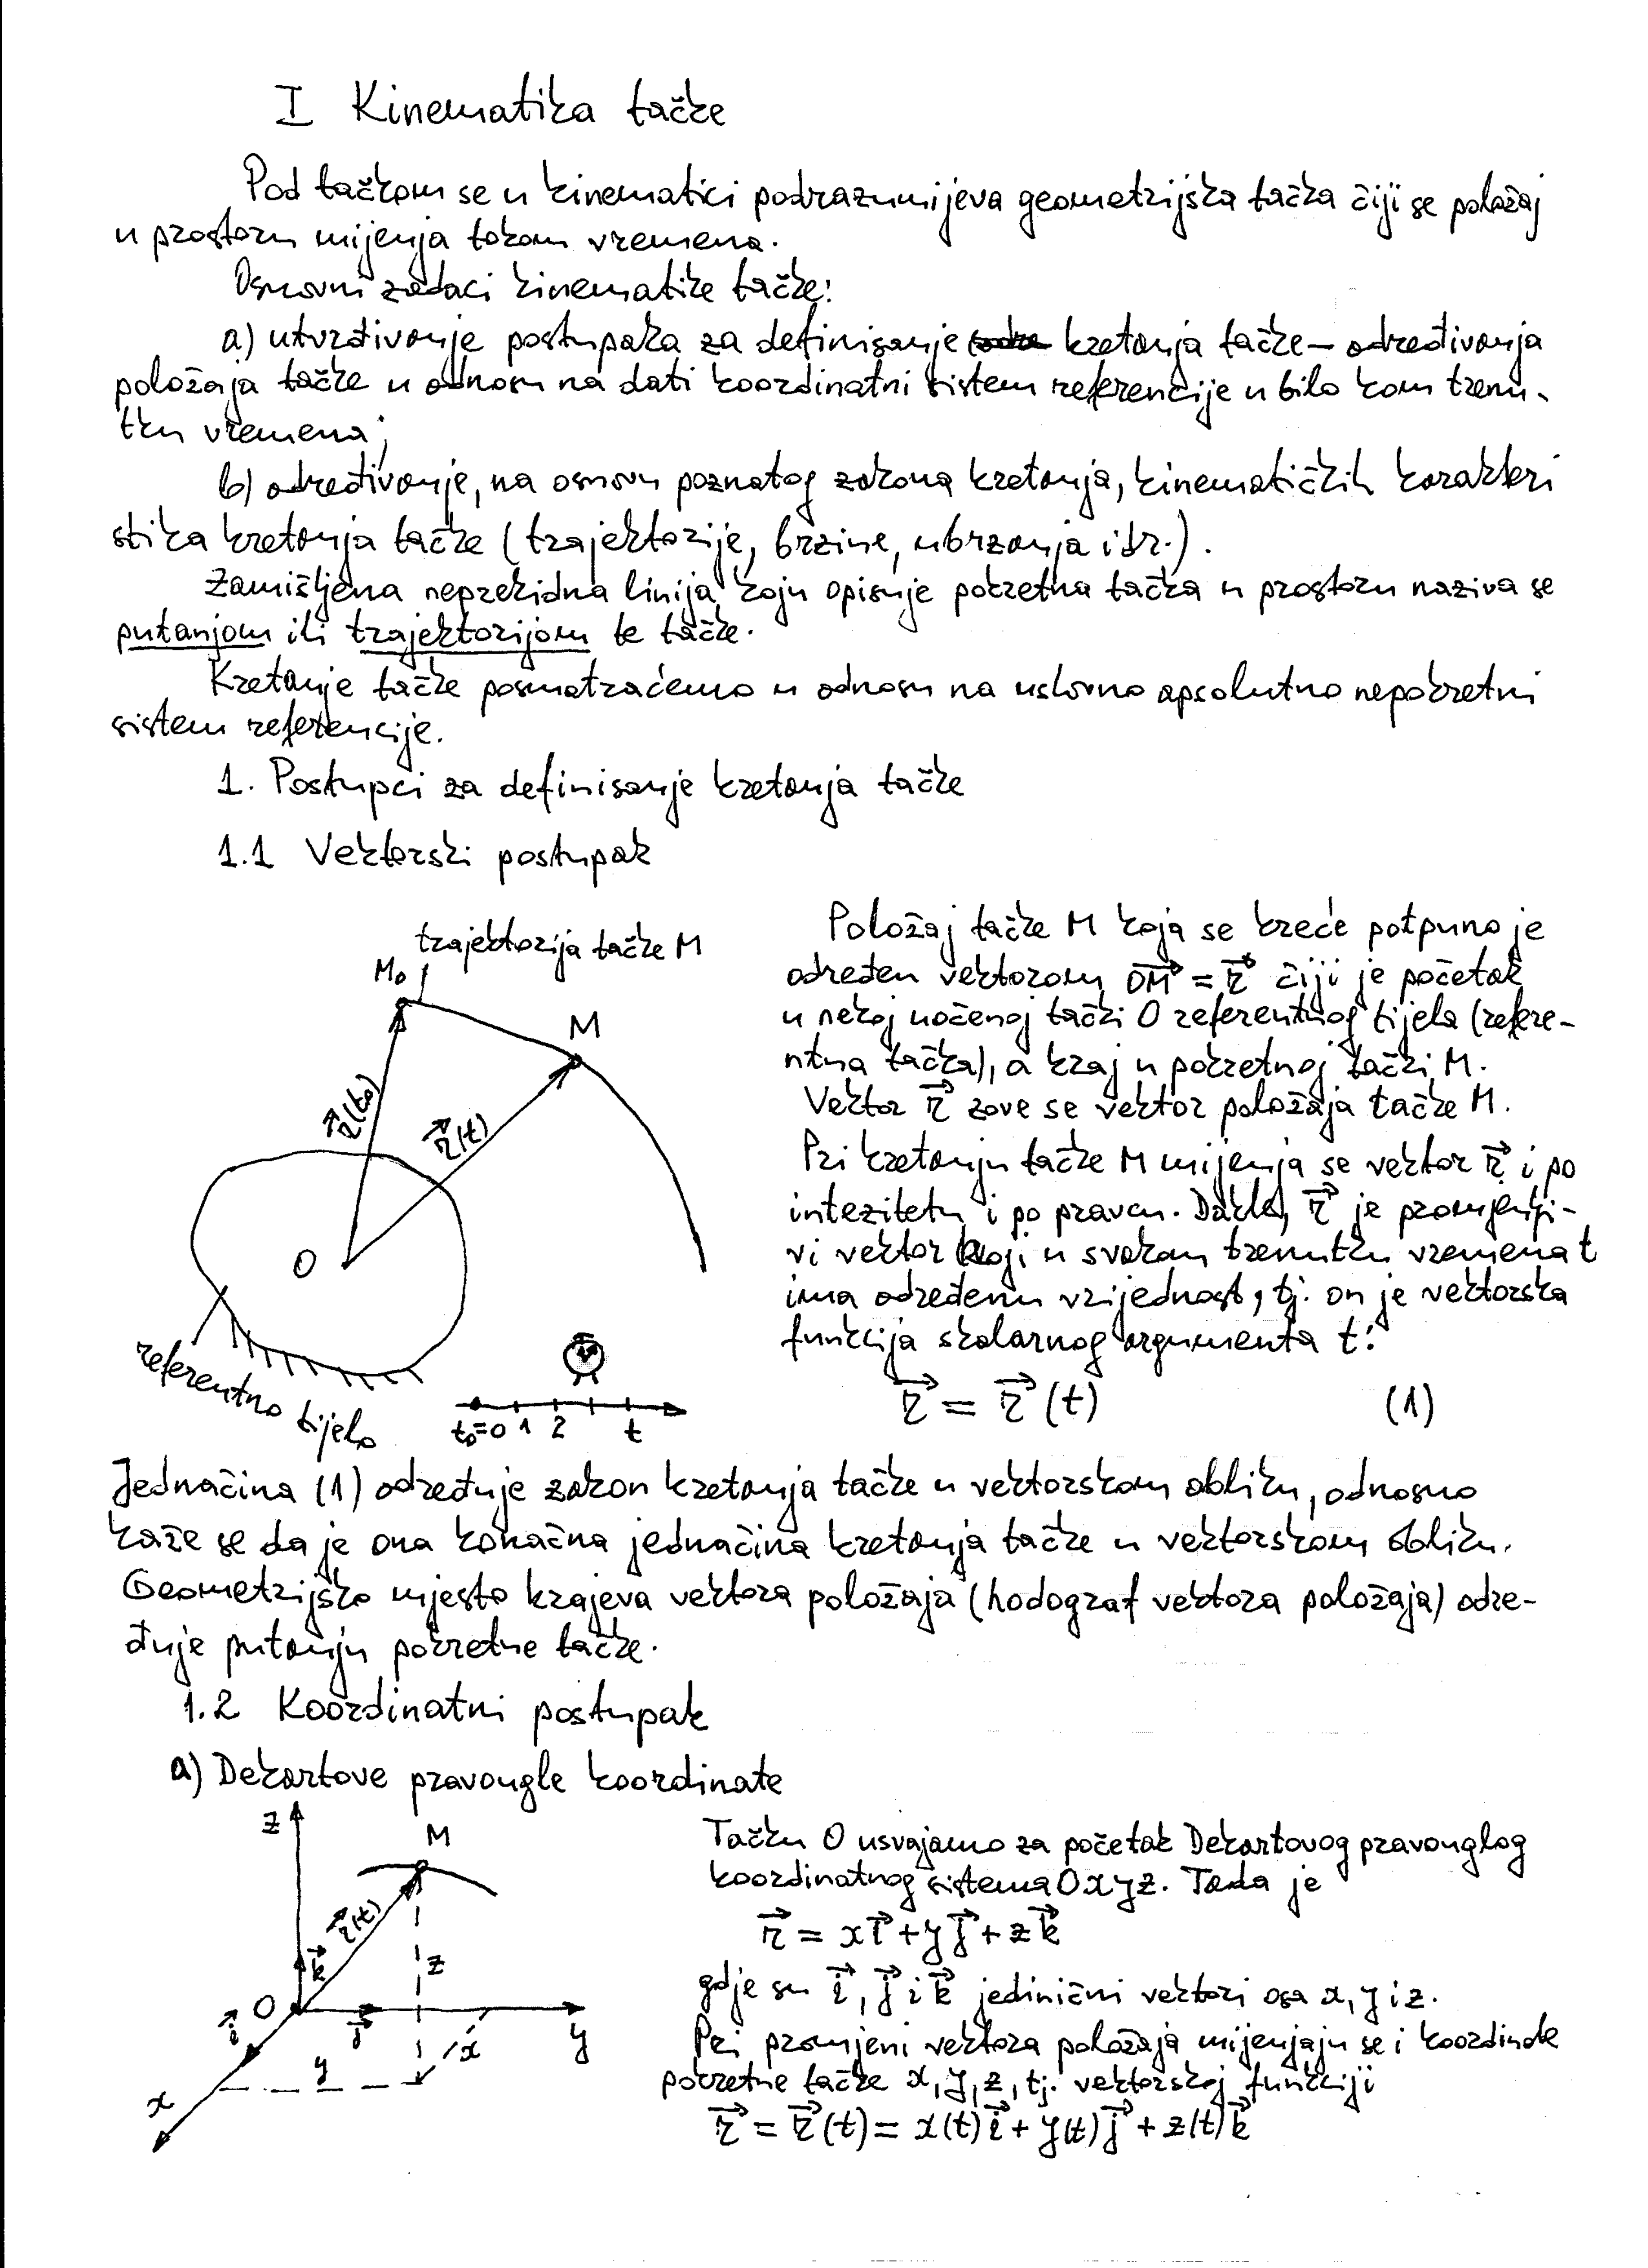 I Kinematika tačke
Pod tačkom se u kinematici podrazumijeva geometrijska tačka čiji se položaj
u prostoru mijenja tokom vremena.
Osnovni zadaci kinematike tačke:
a) utvrđivanje postupaka za definisanje kretanja tačke – određivanja
položaja tačke u odnosu na dati koordinatni sistem referencije u bilo kom trenu-
tku vremena;
b) određivanje, na osnovu poznatog zakona kretanja, kinematičkih karakteri
stika kretanja tačke (trajektorije, brzine, ubrzanja i dr.).
Zamišljena neprekidna linija koju opisuje pokretna tačka u prostoru naziva se
putanjom ili trajektorijom te tačke.
Kretanje tačke posmatraćemo u odnosu na uslovno apsolutno nepokretni
sistem referencije.
1. Postupci za definisanje kretanja tačke
1.1 Vektorski postupak
trajektorija tačke M
M₀
M
r⃗(t₀)
r⃗(t)
O
referentno tijelo
t₀=0 1 2 t
Položaj tačke M koja se kreće potpuno je
određen vektorom O⃗M⃗ = r⃗ čiji je početak
u nekoj uočenoj tački O referentnog tijela (refere-
ntna tačka), a kraj u pokretnoj tački M.
Vektor r⃗ zove se vektor položaja tačke M.
Pri kretanju tačke M mijenja se vektor r⃗ i po
intezitetu i po pravcu. Dakle, r⃗ je promjenlji-
vi vektor koji u svakom trenutku vremena t
ima određenu vrijednost, tj. on je vektorska
funkcija skalarnog argumenta t:
r⃗ = r⃗ (t) (1)
Jednačina (1) određuje zakon kretanja tačke u vektorskom obliku, odnosno
kaže se da je ona konačna jednačina kretanja tačke u vektorskom obliku.
Geometrijsko mjesto krajeva vektora položaja (hodograf vektora položaja) odre-
đuje putanju pokretne tačke.
1.2 Koordinatni postupak
a) Dekartove pravougle koordinate
z
M
r⃗(t)
k⃗
z
O
i⃗
j⃗
y
x
y
x
Tačku O usvajamo za početak Dekartovog pravouglog
koordinatnog sistema Oxyz. Tada je
r⃗ = xi⃗ + yj⃗ + zk⃗
gdje su i⃗, j⃗ i k⃗ jedinični vektori osa x, y i z.
Pri promjeni vektora položaja mijenjaju se i koordinate
pokretne tačke x, y, z, tj. vektorskoj funkciji
r⃗ = r⃗ (t) = x(t)i⃗ + y(t)j⃗ + z(t)k⃗